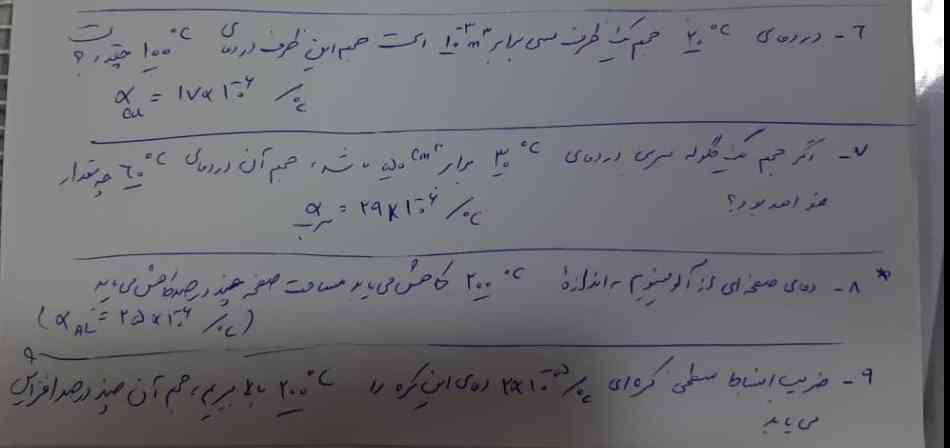 ۶- در دمای ۲۰°C حجم یک ظرف مسی برابر ۱۰⁻³ m³ است حجم این ظرف در دمای ۱۰۰°C چقدر است؟
α_Cu = ۱۷×۱۰⁻⁶ /°C
۷- اگر حجم یک گلوله سربی در دمای ۳۰°C برابر ۵۰ cm³ باشد، حجم آن در دمای ۶۰°C چه مقدار
خواهد بود؟
α سرب = ۲۹×۱۰⁻⁶ /°C
* ۸- دمای صفحه‌ای از آلومینیوم به اندازهٔ ۲۰۰°C کاهش می‌یابد مساحت صفحه چند درصد کاهش می‌یابد
(α_AL = ۲۵×۱۰⁻⁶ /°C)
۹- ضریب انبساط سطحی کره‌ای ۲×۱۰⁻⁵ /°C دمای این کره را ۲۰۰°C بالا ببریم، حجم آن چند درصد افزایش
می‌یابد ؟